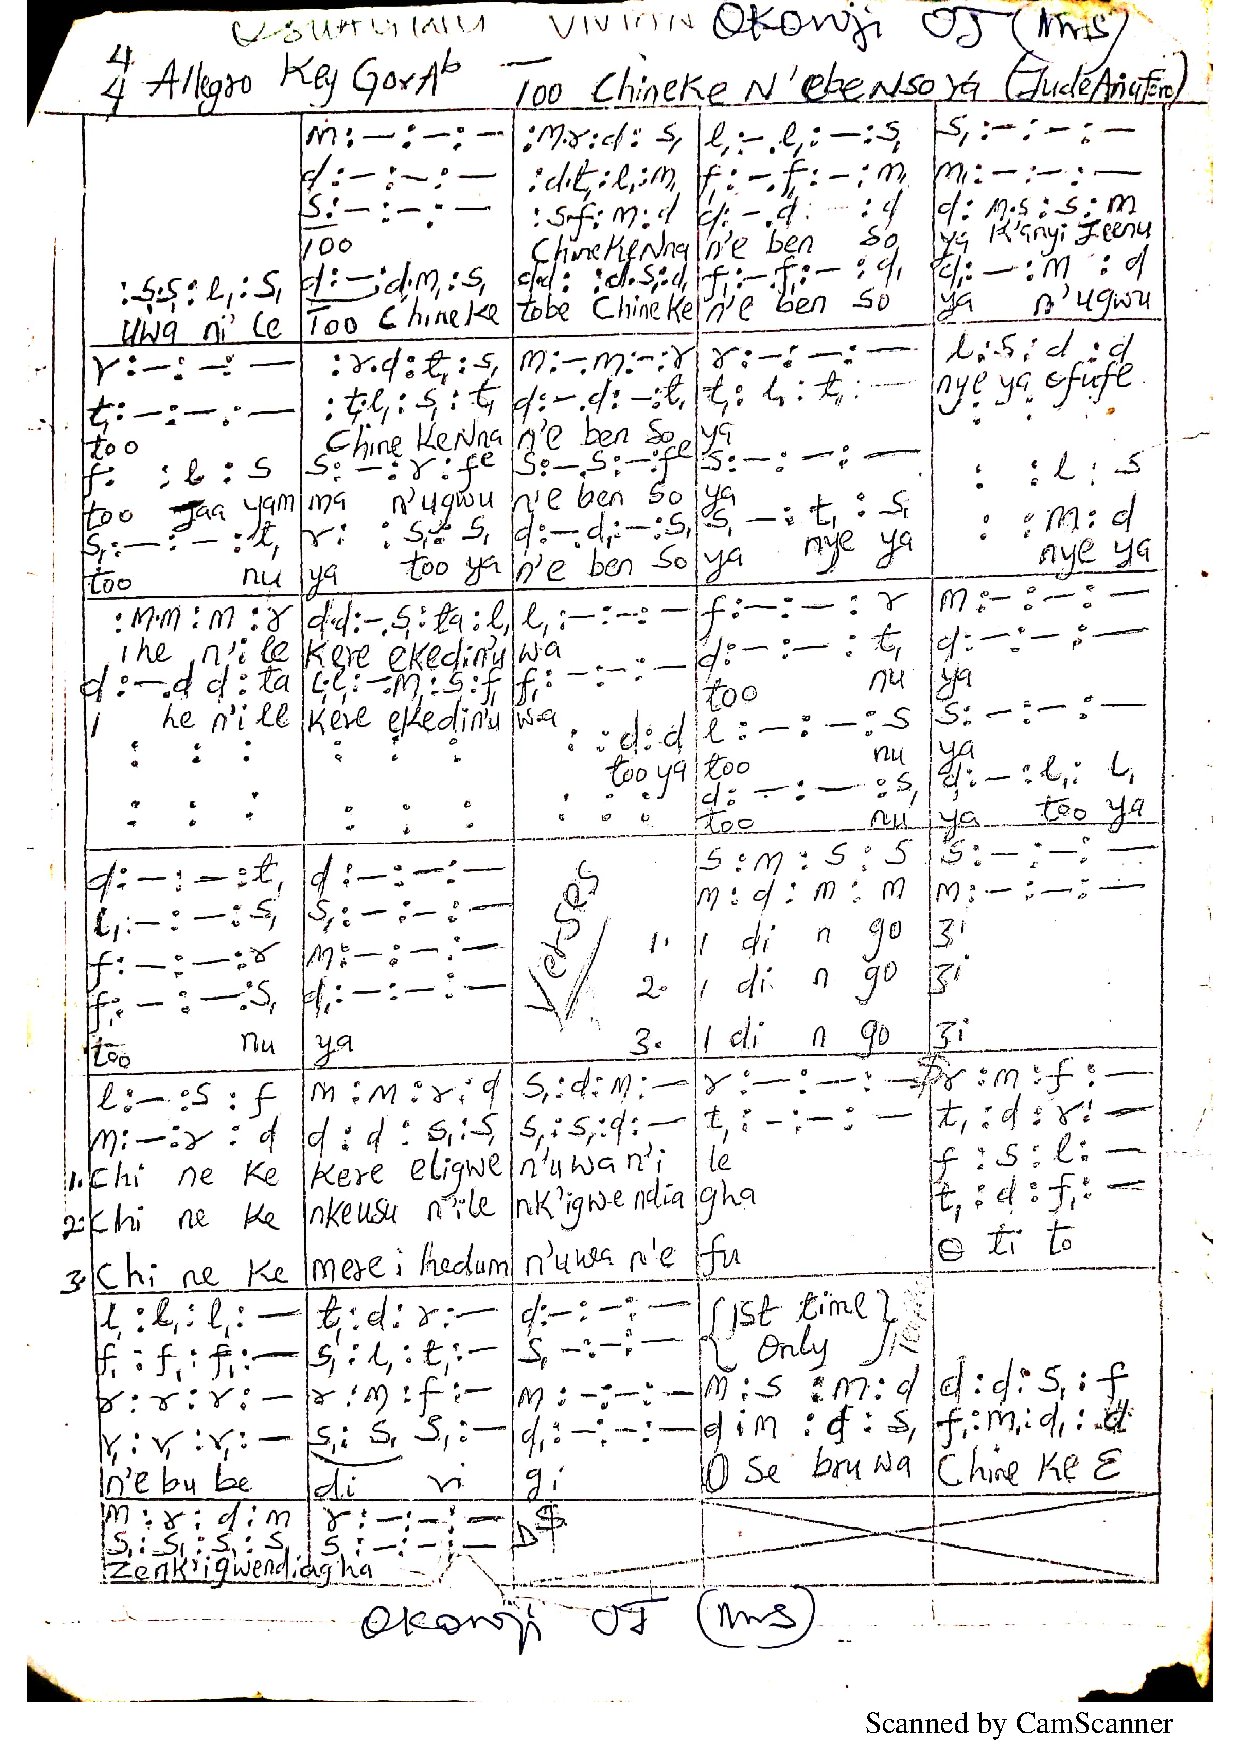 VIVIAN Okonji OJ (Mrs)
4/4 Allegro Key G or Ab Too Chineke N'ebenso ya (Jude
m:—:—:— :m.r:d:s, l,:—.l,:—:s, s,:—:—:—
d:—:—:— :d.t,:l,:m, f,:—.f,:—:m, m,:—:—:—
s:—:—:— :s.f:m:d d:—.d: :d d:m.s:s:m
Too ChinekeNna n'e ben so ya K'anyi Jeenu
:s,.s,:l,:s, d:—:d.m,:s, d.d: :d.s,:d, f,:—.f,:—:d, d,:—:m:d
uwa ni'le Too Chineke tobe Chineke n'e ben so ya n'ugwu
r:—:—:— :r.d:t,:s, m:—.m:—:r r:—:—:— l,:s,:d:d
t,:—:—:— :t,.l,:s,:t, d:—.d:—:t, t,:l,:t,:— nye ya Ofufe
too ChinekeNna n'e ben so ya
f: :l:s s:—:r:fe s:—.s:—:fe s:—:—:— : :l:s
too Jaa yam ma n'ugwu n'e ben so ya
s,:—:—:t, r: :s,:s, d:—.d,:—:s, s,:—:t,:s, : :m:d
too nu ya too ya n'e ben so ya nye ya nye ya
:m.m:m:r d.d:—.s,:ta:l, l,:—:—:— f:—:—:r m:—:—:—
ihe n'i le kere ekedin'u wa d:—:—:t, d:—:—:—
d:—.d d:ta l,.l,:—.m,:s,:f, f,:—:—:— too nu ya
i he n'i le kere ekedin'u wa
: : : : : : : :d:d l:—:—:s s:—:—:—
too ya too nu ya
: : : : : : : : : d:—:—:s, d:—:l,:l,
too nu ya too ya
d:—:—:t, d:—:—:— s:m:s:s s:—:—:—
l,:—:—:s, s,:—:—:— m:d:m:m m:—:—:—
f:—:—:r m:—:—:— Verses 1. I di n go zi
f,:—:—:s, d,:—:—:— 2. I di n go zi
too nu ya 3. I di n go zi
l:—:s:f m:m:r:d s,:d:m:— r:—:—:— r:m:f:—
m:—:r:d d:d:s,:s, s,:s,:d:— t,:—:—:— t,:d:r:—
1. Chi ne ke kere eligwe n'uwa n'i le f:s:l:—
2. Chi ne ke nkeusu n'ile nk'igwendia gha t,:d:f,:—
3. Chi ne ke mere ihedum n'uwa n'e fu O ti to
l,:l,:l,:— t,:d:r:— d:—:—:— {1st time}
f,:f,:f,:— s,:l,:t,:— s,:—:—:— {Only}
r:r:r:— r:m:f:— m:—:—:— m:s:m:d d:d:s,:f
r,:r,:r,:— s,:s,:s,:— d,:—:—:— d:m:d:s, f,:m,:d,:d
n'e bu be di ri gi O se buruwa Chine ke E
m:r:d:m r:—:—:— D$
s,:s,:s,:s, s,:—:—:—
Zenk'igwendiagha
Okonji OJ (Mrs)
Scanned by CamScanner